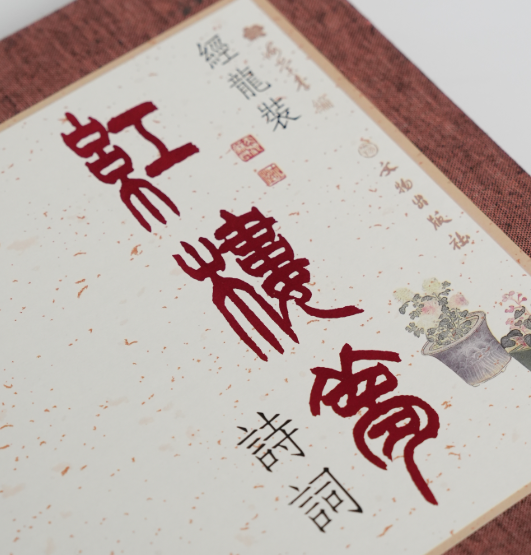 經龍裝
紅樓夢
詩詞
文物出版社